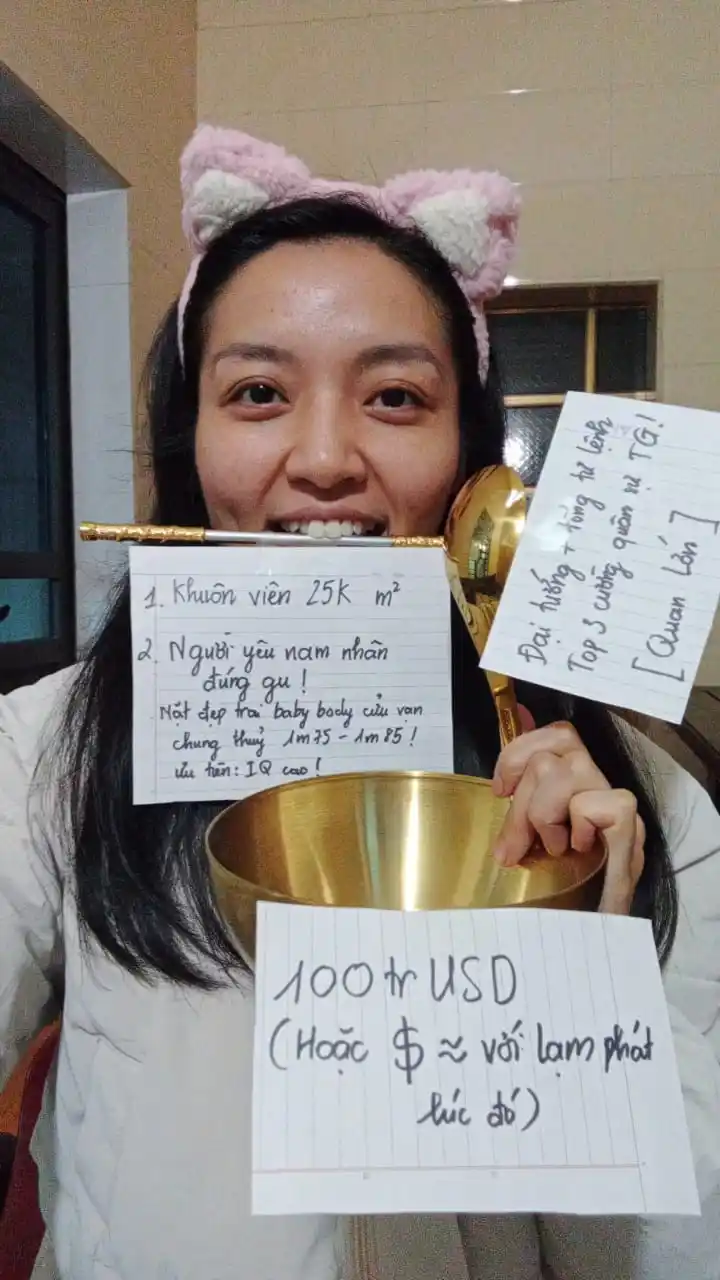 1. Khuôn viên 25K m²
2. Người yêu nam nhân
đúng gu!
Mặt đẹp trai baby body cửu vạn
chung thuỷ 1m75 - 1m85!
ưu tiên: IQ cao!
Đại tướng + tổng tư lệnh
Top 3 cường quân sự TG!
[Quan Lớn]
100tr USD
(Hoặc $ ≈ với lạm phát
lúc đó)